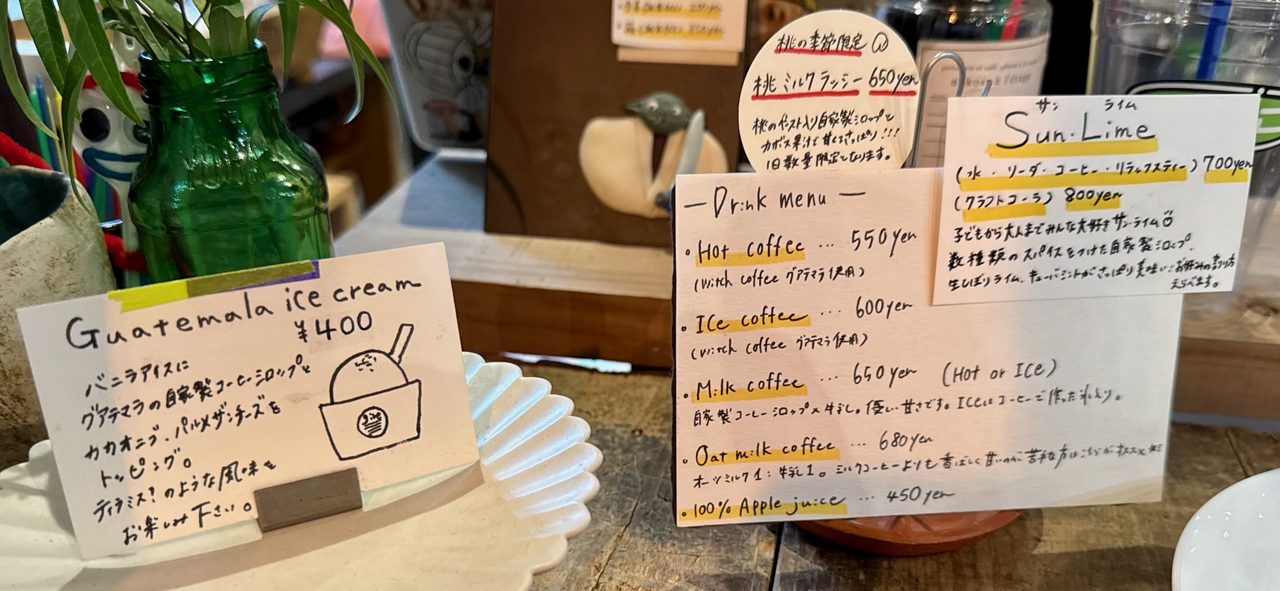 Guatemala ice cream
¥400
バニラアイスに
グアテマラの自家製コーヒーシロップと
カカオニブ、パルメザンチーズを
トッピング。
ティラミス?のような風味を
お楽しみ下さい。
桃の季節限定
桃ミルクラッシー 650yen
桃のペースト入り自家製シロップと
カボス果汁で甘くてさっぱり!!!
1日数量限定となります。
— Drink menu —
・Hot coffee … 550yen
(witch coffee グアテマラ使用)
・Ice coffee … 600yen
(witch coffee グアテマラ使用)
・Milk coffee … 650yen (Hot or Ice)
自家製コーヒーシロップ×牛乳。優しい甘さです。Iceはコーヒーで作った氷入り。
・Oat milk coffee … 680yen
オーツミルク1:牛乳1。ミルクコーヒーよりも香ばしく甘いのが苦手な方はこちらがオススメ
・100% Apple juice … 450yen
サン ライム
Sun・Lime
(水・ソーダ・コーヒー・リラックスティー) 700yen
(クラフトコーラ) 800yen
子どもから大人までみんな大好きサンライム
数種類のスパイスをつけた自家製シロップ、
生しぼりライム、キューバミントがさっぱり美味しい お好みの割り方
えらべます。